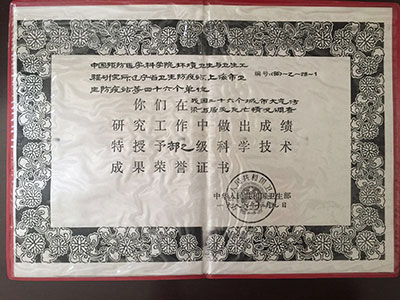 中国预防医学科学院环境卫生与卫生工
程研究所辽宁省卫生防疫站、上海市卫
生防疫站等四十六个单位
编号:(86)—乙—15—1
你们在我国二十六个城市大气污
染与居民死亡情况调查
研究工作中做出成绩
特授予部乙级科学技术
成果荣誉证书
中华人民共和国卫生部